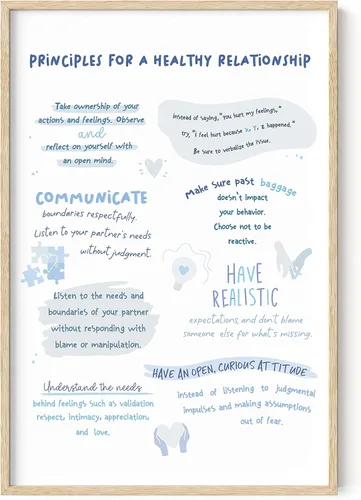 PRINCIPLES FOR A HEALTHY RELATIONSHIP
Take ownership of your
actions and feelings. Observe
and
reflect on yourself with
an open mind.
Instead of saying, "You hurt my feelings,"
try, "I feel hurt because X, Y, Z happened."
Be sure to verbalize the issue.
COMMUNICATE
boundaries respectfully.
Listen to your partner's needs
without judgment.
Make sure past baggage
doesn't impact
your behavior.
Choose not to be
reactive.
Listen to the needs and
boundaries of your partner
without responding with
blame or manipulation.
HAVE
REALISTIC
expectations, and don't blame
someone else for what's missing.
HAVE AN OPEN, CURIOUS ATTITUDE
instead of listening to judgmental
impulses and making assumptions
out of fear.
Understand the needs
behind feelings such as validation
respect, intimacy, appreciation,
and love.